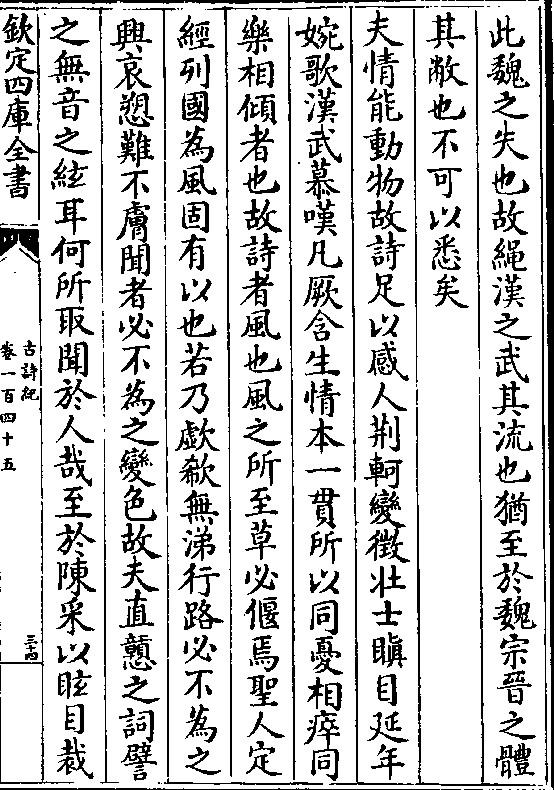 此魏之失也故繩漢之武其流也猶至於魏宗晉之體
其敝也不可以悉矣
夫情能動物故詩足以感人荆軻變徵壯士瞋目延年
婉歌漢武慕嘆凡厥含生情本一貫所以同憂相瘁同
樂相傾者也故詩者風也風之所至草必偃焉聖人定
經列國為風固有以也若乃歔欷無涕行路必不為之
興哀愬難不膚聞者必不為之變色故夫直戇之詞譬
之無音之絃耳何所取聞於人哉至於陳采以眩目裁
欽定四庫全書
古詩紀
卷一百四十五
三十四